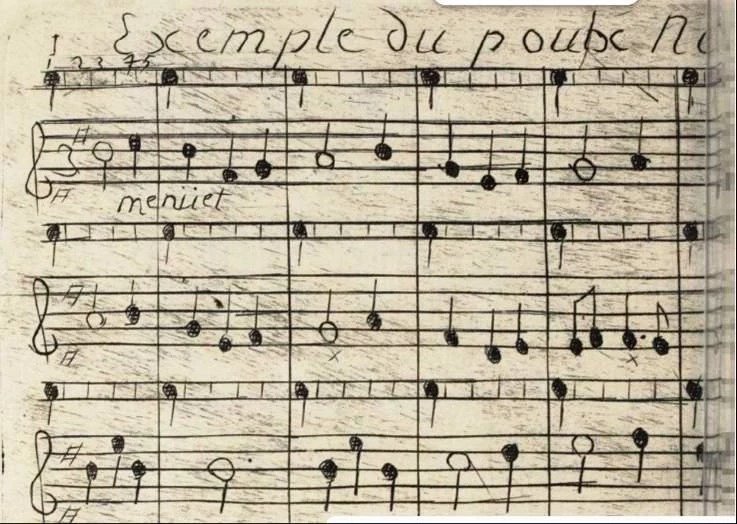 Exemple du poulx
1 2 3 4 5
3
menüet